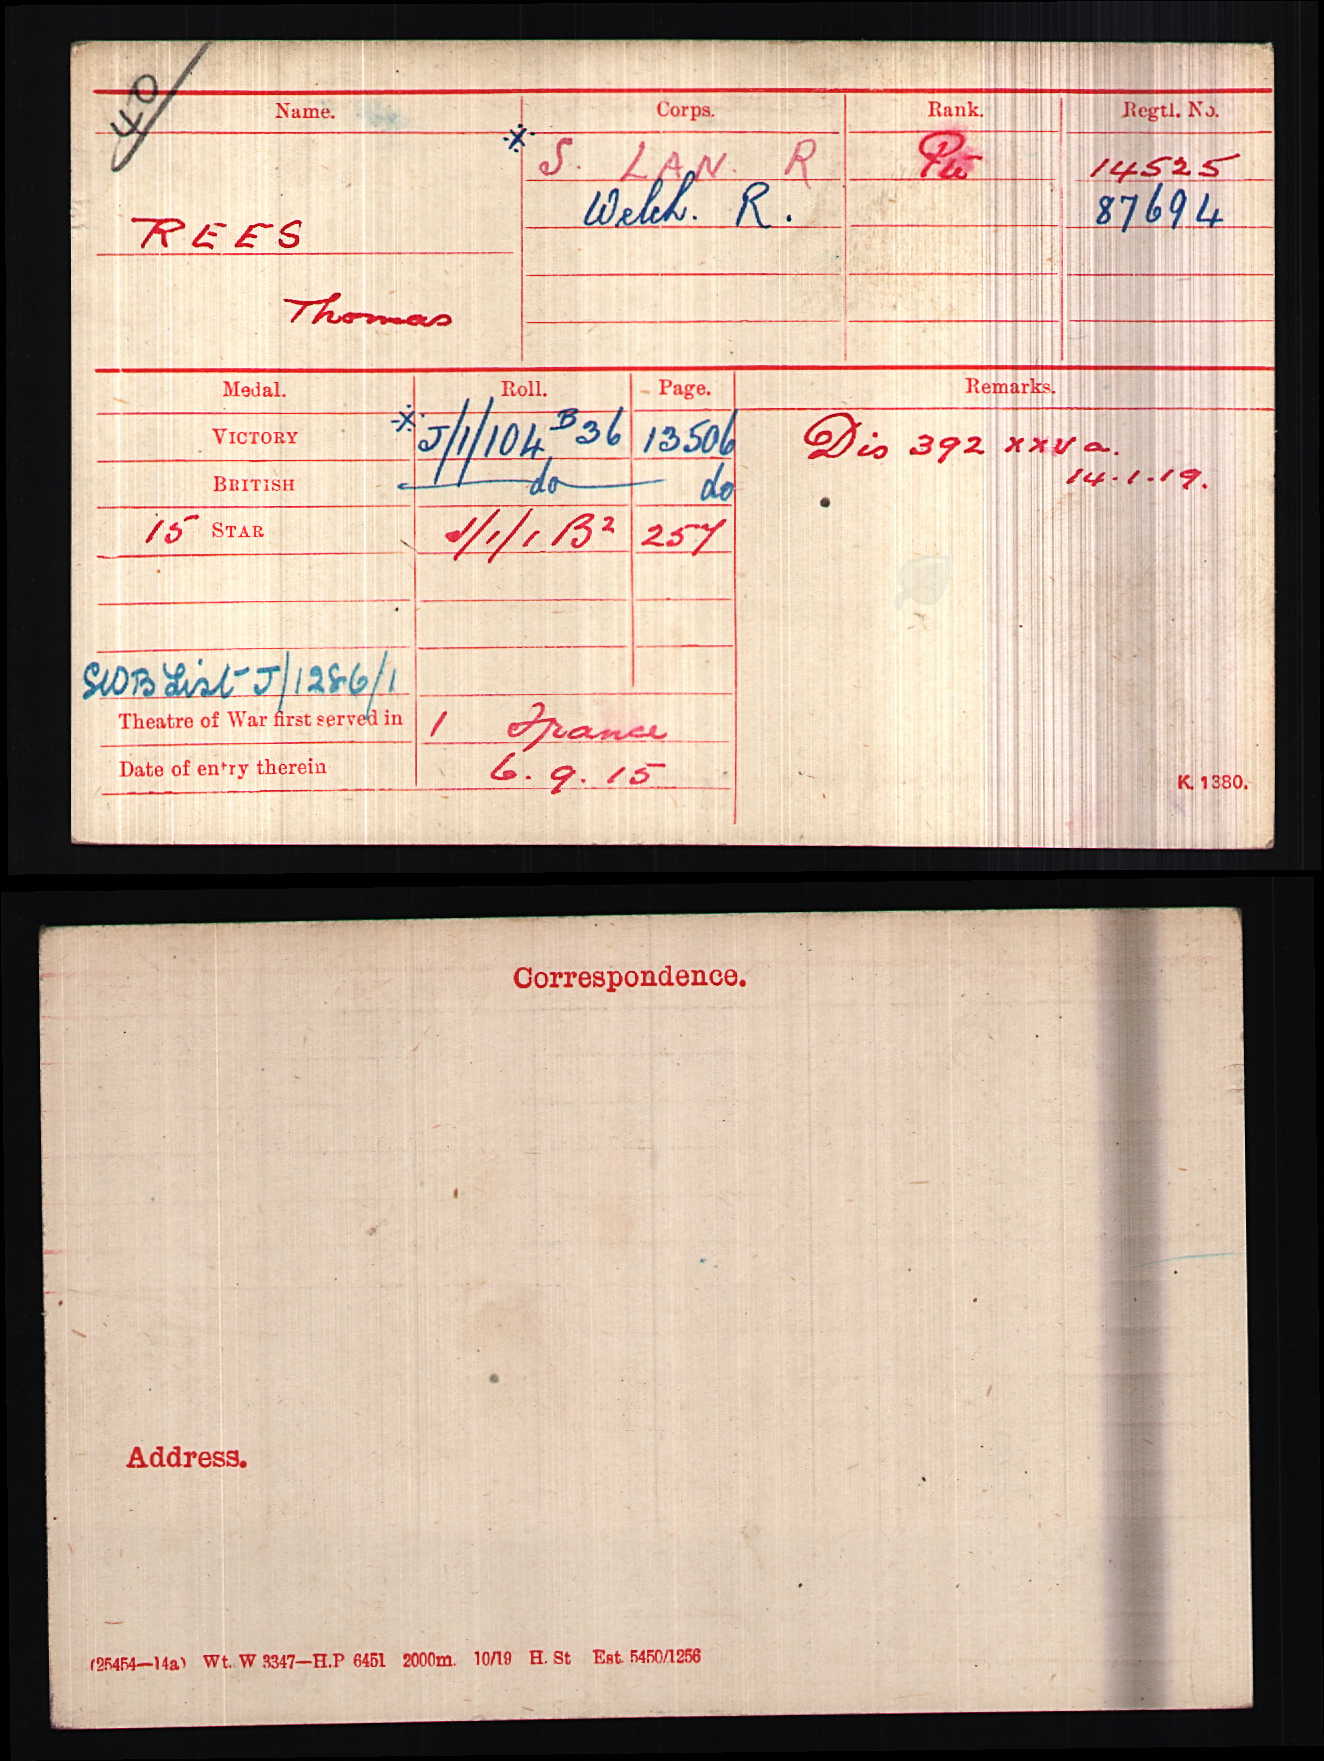 40
Name. Corps. Rank. Regtl. No.
* S. LAN. R Pte 14525
Welch. R. 87694
REES
Thomas
Medal. Roll. Page. Remarks.
VICTORY * J/1/104 B36 13506 Dis 392 xxv a.
BRITISH do do 14.1.19.
15 STAR J/1/1 B2 257
SWB List J/1286/1
Theatre of War first served in 1 France
Date of entry therein 6.9.15
K. 1380.
Correspondence.
Address.
(25454—14a) Wt. W 3347—H.P 6451 2000m. 10/19 H. St Est. 5450/1256